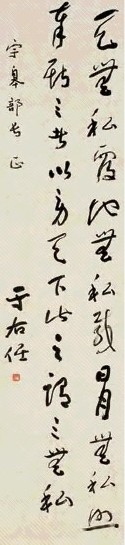 天無私覆地無私載日月無私照
奉斯三者以勞天下此之謂三無私
皋部長 正
于右任